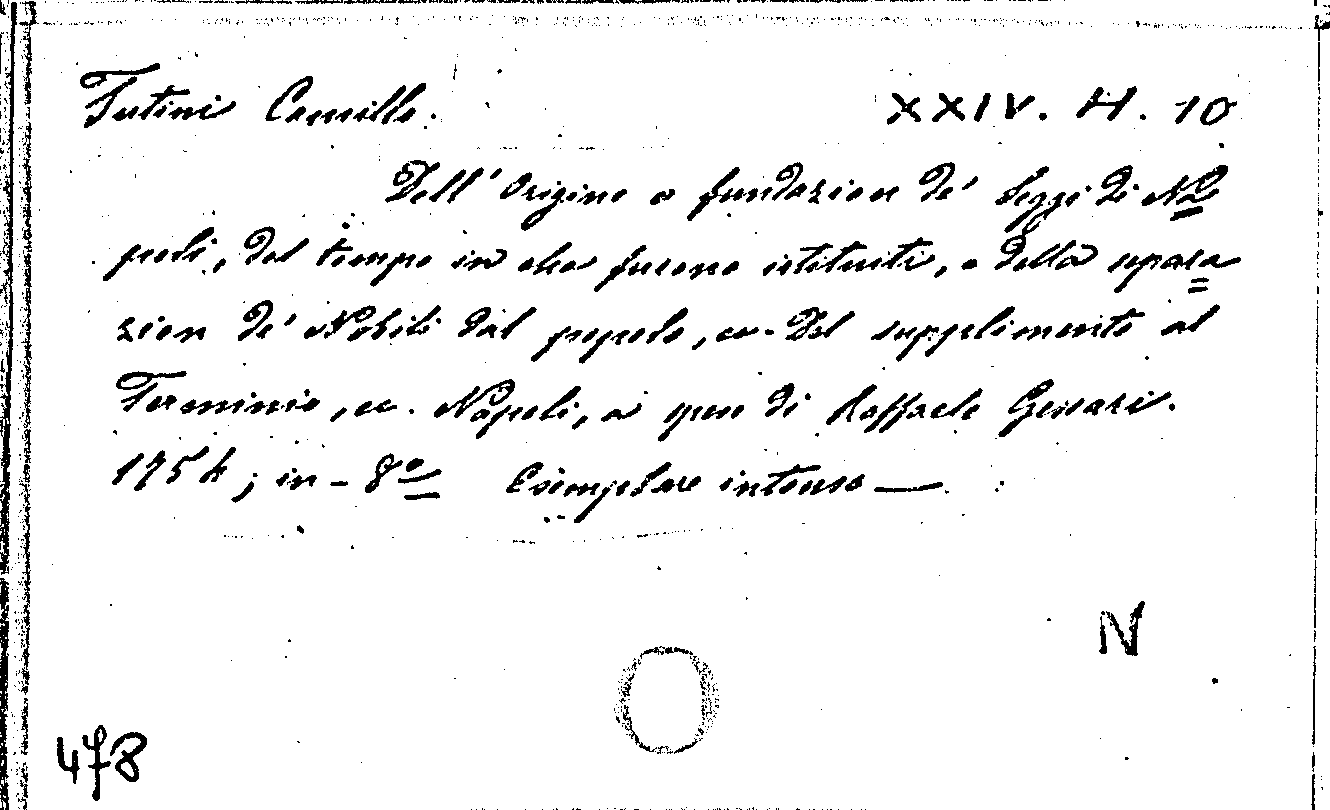 Tutini Camillo. XXIV. H. 10
Dell' Origine e fundazion de' Seggi di Na
poli, del tempo in che furono istituiti, e della separa
zion de' Nobili dal popolo, ec. Del supplimento al
Terminio, ec. Napoli, a spese di Raffaele Gessari.
1754; in-8º Esemplare intonso —
N
478